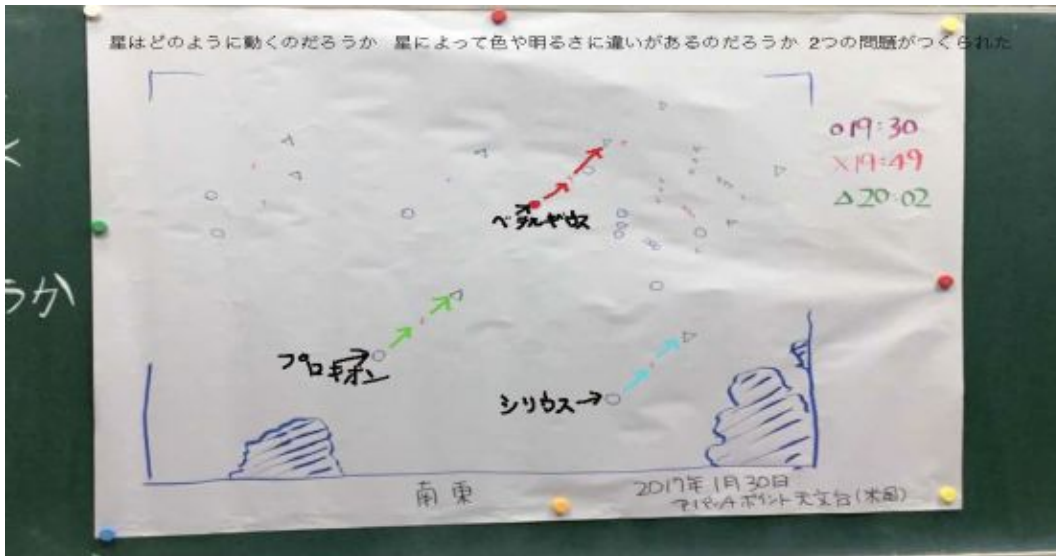 星はどのように動くのだろうか 星によって色や明るさに違いがあるのだろうか 2つの問題がつくられた
○19:30
×19:49
△20:02
ベテルギウス
プロキオン
シリウス
うか
南東
2017年1月30日
アパッチポイント天文台(米国)